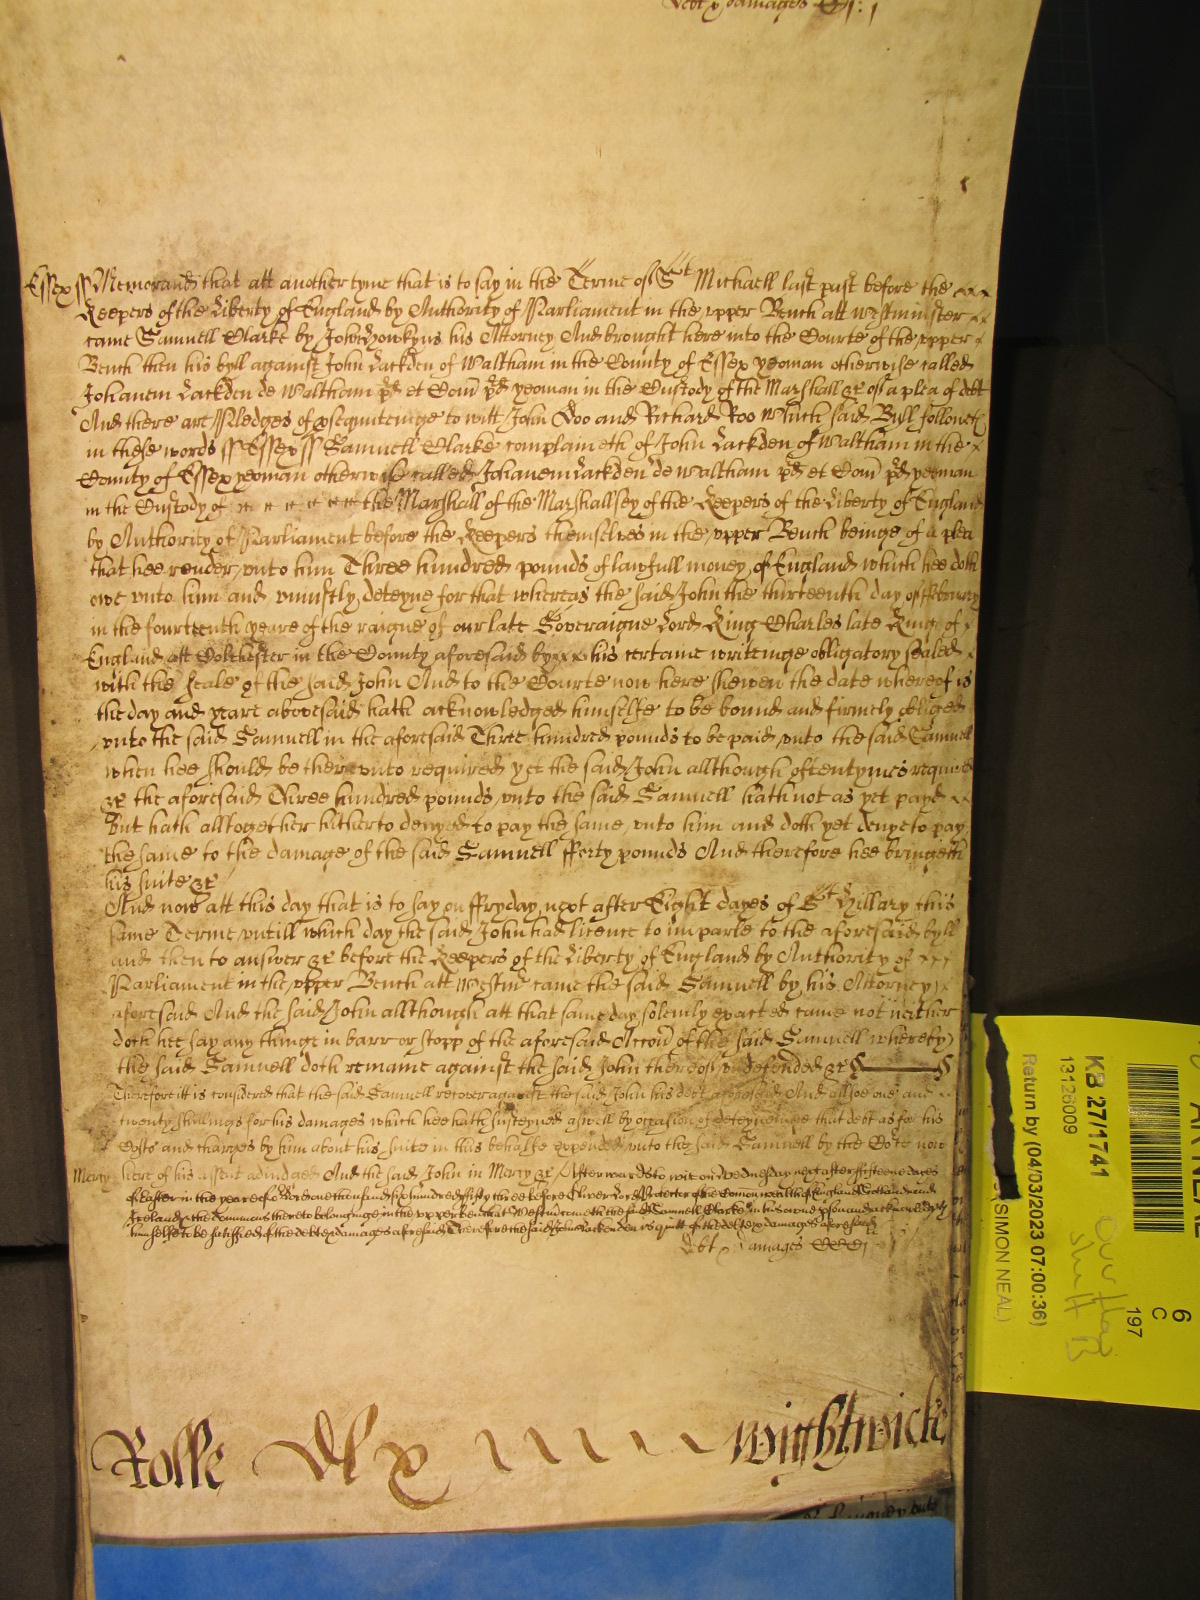 debt & damages
Essex ss Memorand that att another tyme that is to say in the Terme of St Michaell last past before the
Keepers of the Liberty of England by Authority of Parliament in the upper Bench att Westminster
came Samuell Clarke by John Howkyns his Attorney And brought here into the Courte of the upper
Bench then his byll against John Lackden of Waltham in the County of Essex yeoman otherwise called
Johanem Lackden de Waltham pd et Com pd yeoman in the Custody of the Marshall &c of a plea of debt
And there are Pledges of prosequuteinge to witt John Doo and Richard Roo Which said Byll followeth
in these words ss Essex ss Samuell Clarke complaineth of John Lackden of Waltham in the
County of Essex yeoman otherwise called Johanem Lackden de Waltham pd et Com pd yeoman
in the Custody of the Marshall of the Marshallsey of the Keepers of the Liberty of England
by Authority of Parliament before the Keepers themselves in the upper Bench beinge of a plea
that hee render unto him Three hundred pounds of lawfull money of England which hee doth
owe unto him and uniustly deteyne for that whereas the said John the thirteenth day of February
in the fourteenth yeare of the raigne of our late Soveraigne Lord King Charles late King of
England att Colchester in the County aforesaid by his certaine writeinge obligatory sealed
with the seale of the said John And to the Courte now here shewen the date whereof is
the day and yeare abovesaid hath acknowledged himselfe to be bound and firmely obliged
unto the said Samuell in the aforesaid Three hundred pounds to be paid unto the said Samuell
when hee should be thereunto required yet the said John allthough oftentymes required
&c the aforesaid Three hundred pounds unto the said Samuell hath not as yet payd
But hath alltogether hitherto denyed to pay the same unto him and doth yet denye to pay
the same to the damage of the said Samuell fforty pounds And therefore hee bringeth
his suite &c
And now att this day that is to say on ffryday next after Eight dayes of St Hillary this
same Terme untill which day the said John had licence to imparle to the aforesaid byll
and then to answer &c before the Keepers of the Liberty of England by Authority of
Parliament in the upper Bench att Westmr came the said Samuell by his Attorney
aforesaid And the said John allthough att that same day solemly exacted came not neither
doth hee say any thinge in barr or stopp of the aforesaid Accon of the said Samuell whereby
the said Samuell doth remaine against the said John thereof undefended &c
Therefore itt is considered that the said Samuell recover against the said John his debt aforesaid And allsoe one and
twenty shillings for his damages which hee hath susteyned aswell by occasion of deteyninge that debt as for his
Costs and charges by him about his suite in this behalfe expended unto the said Samuell by the Corte now
Mercy here of his assent adiudged And the said John in Mercy &c Afterwards to wit on Wednesday next after fifteene dayes
of Easter in the yeare of or Lord one thousand six hundred fifty three before Oliver Lord Protector of the Comonwealth of England Scotland and
Ireland & the Dominions thereto belonginge in the upper bench att Westmr cometh the said Samuell Clarke in his owne pson and acknowledgeth
himselfe to be satisfied of the debt & damages aforesaid Therefore the said John Lackden is quitt of the debt & damages aforesaid
debt & damages CCCj
Rolle Wightwicke
KB 27/1741
13126009
Return by (04/03/2023 07:00:36)
(SIMON NEAL)
6
C
197